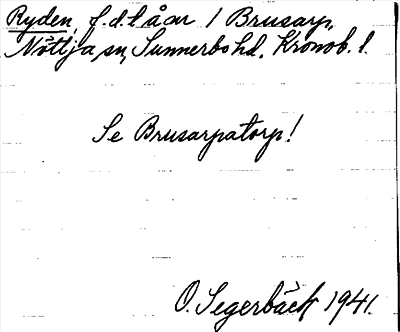 Ryden, f.d. låar 1 Brusarp,
Nöttja sn, Sunnerbo hd. Kronob. l.
Se Brusarpatorp!
O. Segerbäck 1941.